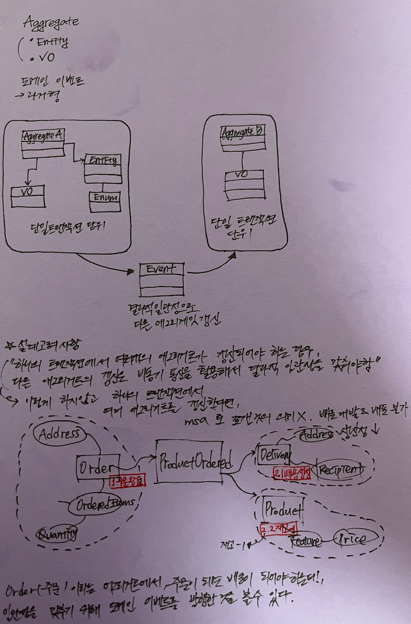 Aggregate
• Entity
• VO
도메인 이벤트
→ 과거형
Aggregate A
Entity
VO
Enum
단일트랜잭션 단위
Aggregate B
VO
단일 트랜잭션
단위
Event
결과적일관성으로
다른 애그리게잇 갱신
"하나의 트랜잭션에서 애그리거트가 갱신되어야 하는 경우,
다른 애그리거트의 갱신은 비동기 통신을 활용해서 결과적 일관성을 맞춰야함"
이렇게 하지않고 하나의 트랜잭션에서
여러 애그리거트를 갱신한다면,
msa 의미 X.
Address
Order
OrderedItems
Quantity
ProductOrdered
Delivery
Address
생산성 ↓
Recipient
Product
재고-1
Feature
Price
Order(주문)이라는 주문이 되면 배송이 되어야하는데!,
일관성을 맞추기 위해 도메인 이벤트를 볼 수 있다.